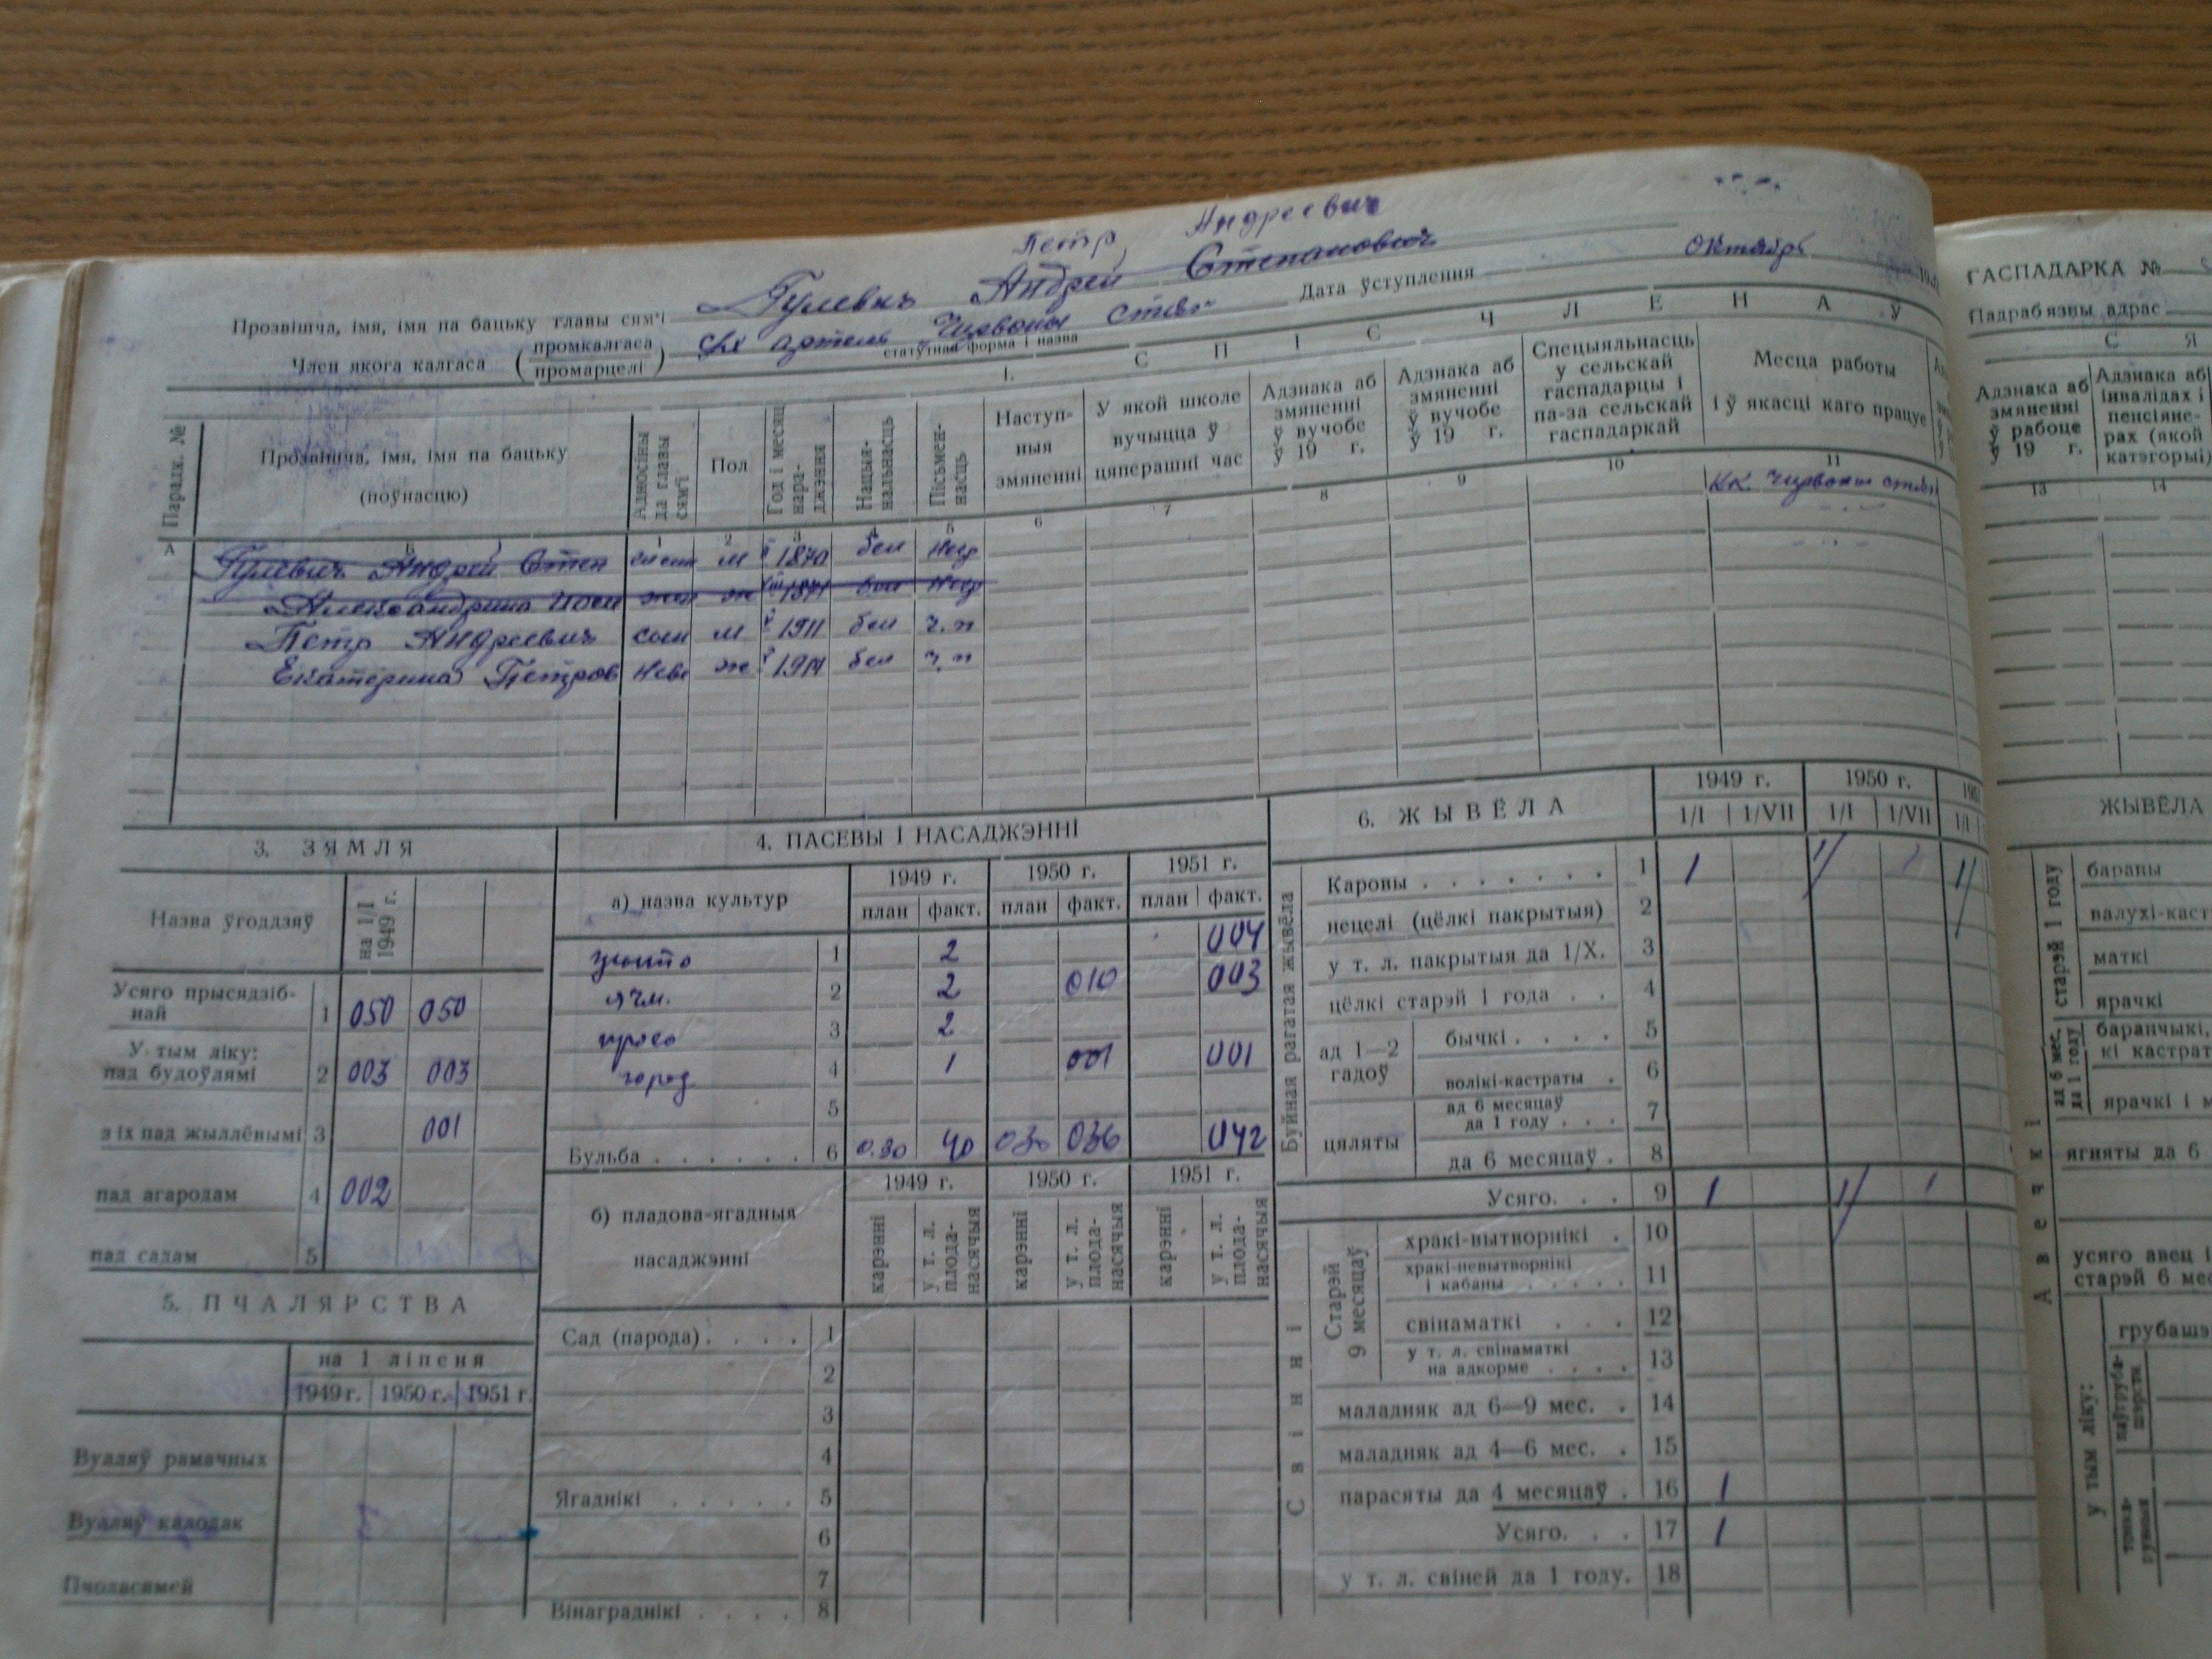 Петр Андреевич
Прозвішча, імя, імя па бацьку главы сям'і Гулевич Андрей Степанович
Член якога калгаса (промкалгаса промарцелі) с/х артель "Чырвоны
статутная форма і назва
Дата ўступлення октябрь
1. СПІС ЧЛЕНАЎ
Парадк. №
Прозвішча, імя, імя па бацьку (поўнасцю)
Адносіны да главы сям'і
Пол
Год і месяц нараджэння
Нацыянальнасць
Пісьменнасць
Наступныя змяненні
У якой школе вучыцца ў цяперашні час
Адзнака аб змяненні ў вучобе ў 19 г.
Адзнака аб змяненні ў вучобе ў 19 г.
Спецыяльнасць у сельскай гаспадарцы і па-за сельскай гаспадаркай
Месца работы і ў якасці каго працуе
А 1 2 3 5 6 7 8 9 10 11
Гулевич Андрей Степ м 1870 бел негр
Александрина жен ж 1871 бел негр
Петр Андреевич сын м 1911 бел ч.п
Екатерина Петров неве ж 1914 бел ч.п
3. ЗЯМЛЯ
Назва ўгоддзяў на 1/I 1949 г.
Усяго прысядзібнай 1 050 050
У тым ліку: пад будоўлямі 2 003 003
з іх пад жыллёвымі 3 001
пад агародам 4 002
пад садам 5
5. ПЧАЛЯРСТВА
на 1 ліпеня
1949 г. 1950 г. 1951 г.
Вулляў рамачных
Вулляў калодак
Пчоласямей
4. ПАСЕВЫ І НАСАДЖЭННІ
а) назва культур
1949 г. 1950 г. 1951 г.
план факт. план факт. план факт.
жыто 1 2 004
ячм. 2 2 010 003
просо 3 2
город 4 1 001 001
5
Бульба . . . . . . 6 0.30 40 030 036 042
1949 г. 1950 г. 1951 г.
б) пладова-ягадныя насаджэнні
карэнні у т. л. плоданасячыя карэнні у т. л. плоданасячыя карэнні у т. л. плоданасячыя
Сад (парода) . . . . 1
2
3
4
Ягаднікі . . . . . 5
6
7
Вінаграднікі . . . . 8
6. ЖЫВЁЛА
1949 г. 1950 г.
1/I 1/VII 1/I 1/VII 1/I
Буйная рагатая жывёла
Каровы . . . . . . . 1 1
нецелі (цёлкі пакрытыя) 2
у т. л. пакрытыя да 1/X. 3
цёлкі старэй 1 года . . 4
ад 1—2 гадоў
бычкі . . . . 5
волікі-кастраты . 6
цяляты
ад 6 месяцаў да 1 году . . . 7
да 6 месяцаў . 8
Усяго. . . 9 1
Свінні
Старэй 9 месяцаў
хракі-вытворнікі . 10
хракі-невытворнікі і кабаны . . . . . 11
свінаматкі . . . 12
у т. л. свінаматкі на адкорме . . . . 13
маладняк ад 6—9 мес. . 14
маладняк ад 4—6 мес. . 15
парасяты да 4 месяцаў . 16 1
Усяго. . . 17 1
у т. л. свіней да 1 году. 18
ГАСПАДАРКА №
Падрабязны адрас
С Я
Адзнака аб змяненні ў рабоце ў 19 г.
Адзнака аб інвалідах і пенсіянерах (якой катэгорыі)
13 14
ЖЫВЁЛА
Авечкі
старэй 1 году
бараны
валухі-каст
маткі
ярачкі
ад 6 мес. да 1 году
баранчыкі,
кі кастрат
ярачкі і м
ягняты да 6
усяго авец і
старэй 6 мес
у тым ліку:
грубашэ